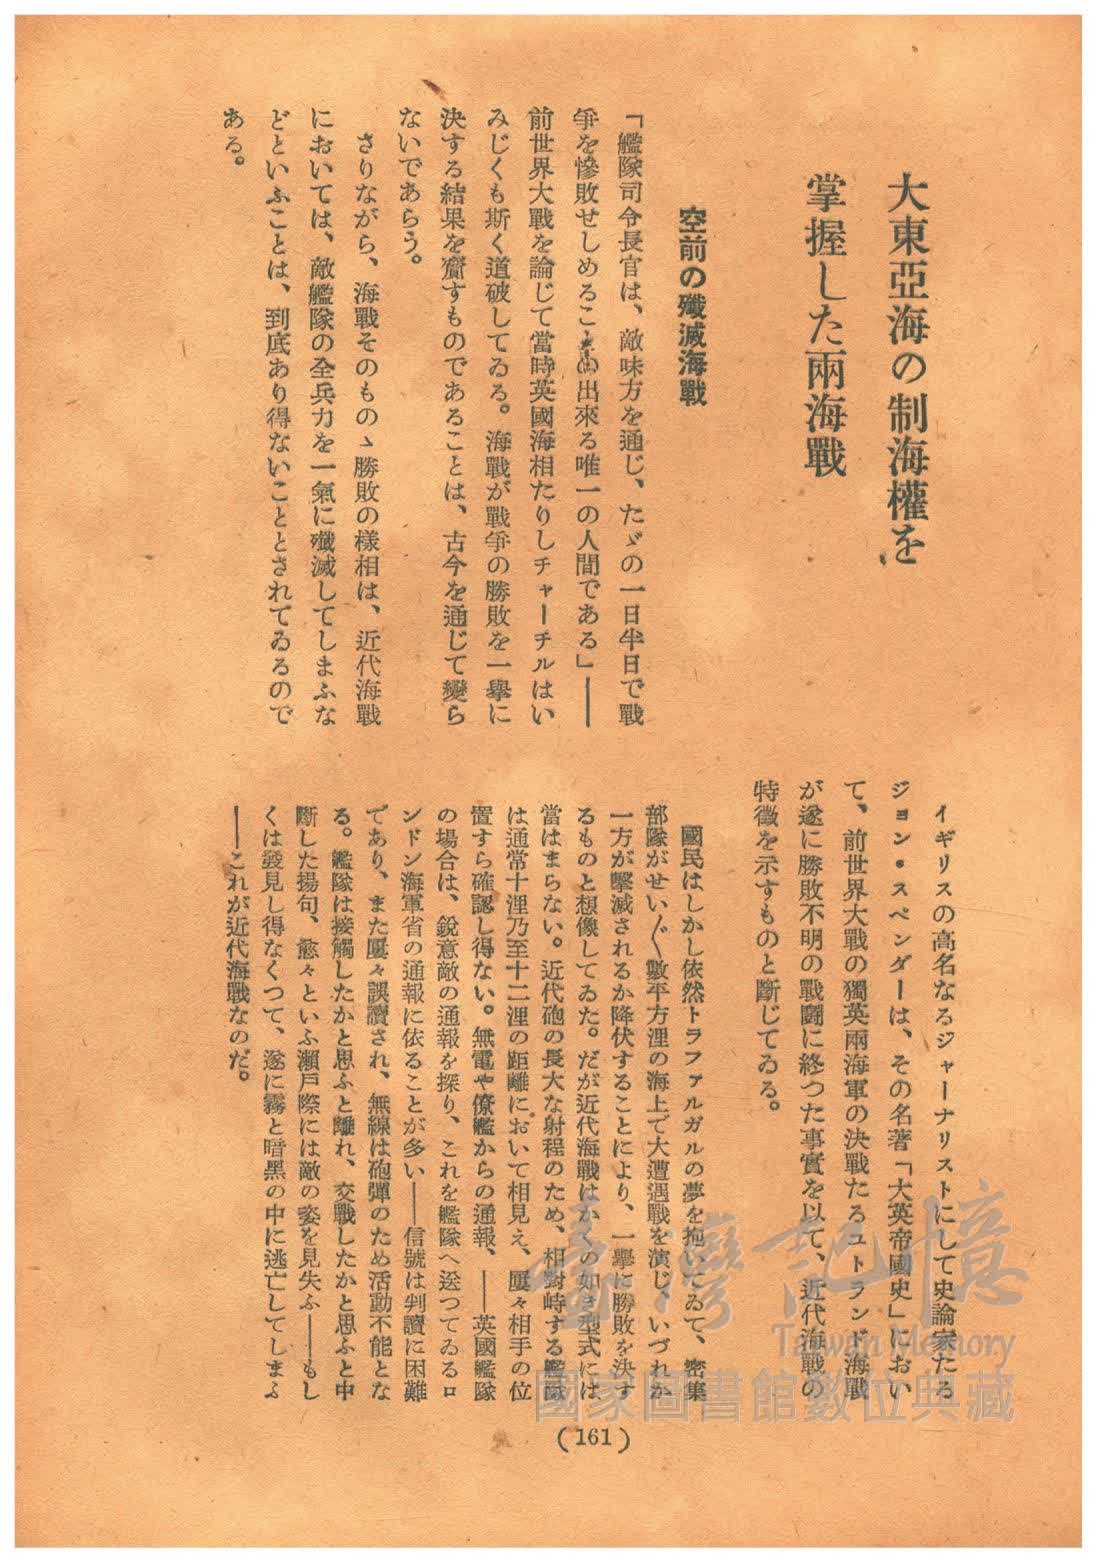 大東亞海の制海權を
掌握した兩海戰
空前の殲滅海戰
「艦隊司令長官は、敵味方を通じ、たゞの一日半日で戰
爭を慘敗せしめることの出來る唯一の人間である」――
前世界大戰を論じて當時英國海相たりしチャーチルはい
みじくも斯く道破してゐる。海戰が戰爭の勝敗を一擧に
決する結果を齎すものであることは、古今を通じて變ら
ないであらう。
さりながら、海戰そのものゝ勝敗の樣相は、近代海戰
においては、敵艦隊の全兵力を一氣に殲滅してしまふな
どといふことは、到底あり得ないこととされてゐるので
ある。
イギリスの高名なるジャーナリストにして史論家たる
ジョン・スペンダーは、その名著「大英帝國史」におい
て、前世界大戰の獨英兩海軍の決戰たるユトランド海戰
が遂に勝敗不明の戰鬪に終つた事實を以て、近代海戰の
特徵を示すものと斷じてゐる。
國民はしかし依然トラファルガルの夢を抱いてゐて、密集
部隊がせい〴〵數平方浬の海上で大遭遇戰を演じ、いづれか
一方が擊滅されるか降伏することにより、一擧に勝敗を決す
るものと想像してゐた。だが近代海戰はかくの如き型式には
當はまらない。近代砲の長大な射程のため、相對峙する艦隊
は通常十浬乃至十二浬の距離において相見え、屢々相手の位
置すら確認し得ない。無電や僚艦からの通報、――英國艦隊
の場合は、銳意敵の通報を探り、これを艦隊へ送つてゐるロ
ンドン海軍省の通報に依ることが多い――信號は判讀に困難
であり、また屢々誤讀され、無線は砲彈のため活動不能とな
る。艦隊は接觸したかと思ふと離れ、交戰したかと思ふと中
斷した揚句、愈々といふ瀨戶際には敵の姿を見失ふ――もし
くは發見し得なくつて、遂に霧と暗黑の中に逃亡してしまふ
――これが近代海戰なのだ。
(161)
臺灣記憶
Taiwan Memory
國家圖書館數位典藏